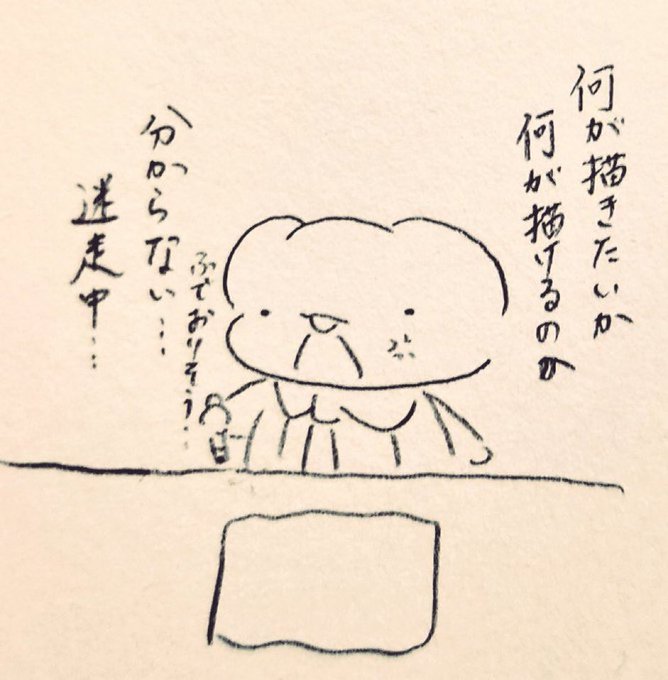 何が描きたいか
何が描けるのか
分からない…
ふでおりそう…
迷走中…